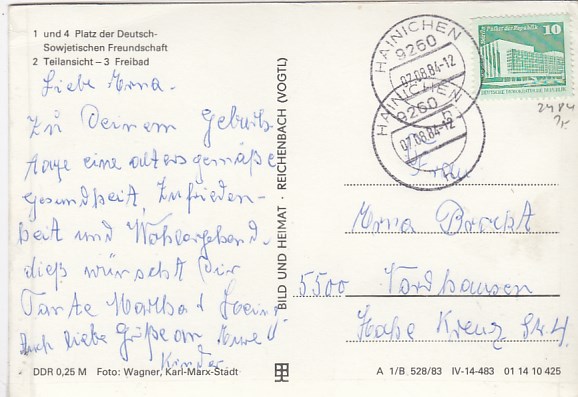 1 und 4 Platz der Deutsch-
Sowjetischen Freundschaft
2 Teilansicht – 3 Freibad
Liebe Erna.
Zu Deinem Geburts-
tage eine altersgemäße
Gesundheit, Zufrieden-
heit und Wohlergehend.
dieß wünscht Dir
Tante Martha &
Auch liebe Grüße an Eure
Kinder
DDR 0,25 M Foto: Wagner, Karl-Marx-Stadt
BILD UND HEIMAT · REICHENBACH (VOGTL)
HAINICHEN
9260
07.08.84-12
HAINICHEN
9260
07.08.84-12
10
2484
Frau
Erna Brockt
5500 Nordhausen
A 1/B 528/83 IV-14-483 01 14 10 425